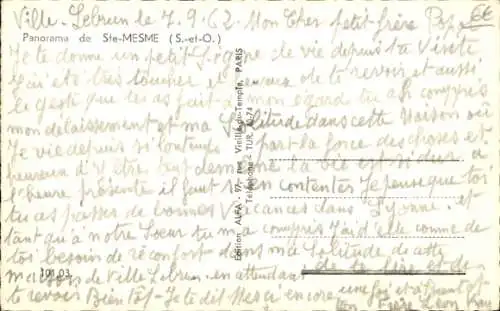 Ville-Lebrun le 7.9.62. Mon Cher petit frère Papa
6E
Panorama de Ste-MESME (S.-et-O.)
Je te donne un petit de vie depuis ta Visite
j'ai été très toucher de te revoir et aussi
le geste que tu as fait a mon égard tu as compris
mon delaissement et ma Solitude dans cette maison où
Je vie depuis si longtemps par la force des choses et
heureux d'y être la vie est si dur a
l'heure présente il faut s'en contenter Je pense que toi
tu as passer de bonnes Vacances dans l'Yonne et
tant qu'à notre Soeur tu m'a compris J'ai d'elle comme de
toi besoin de réconfort dans ma Solitude de cette
maison de Ville Lebrun en attendant de te lire et de
te revoir Bientôt Je te dit Merci encore une fois et à Bientôt
ton Frère Leon
Edition ALFA - 97, rue Vieille-du-Temple, PARIS
Téléphone - TUR.
101.03